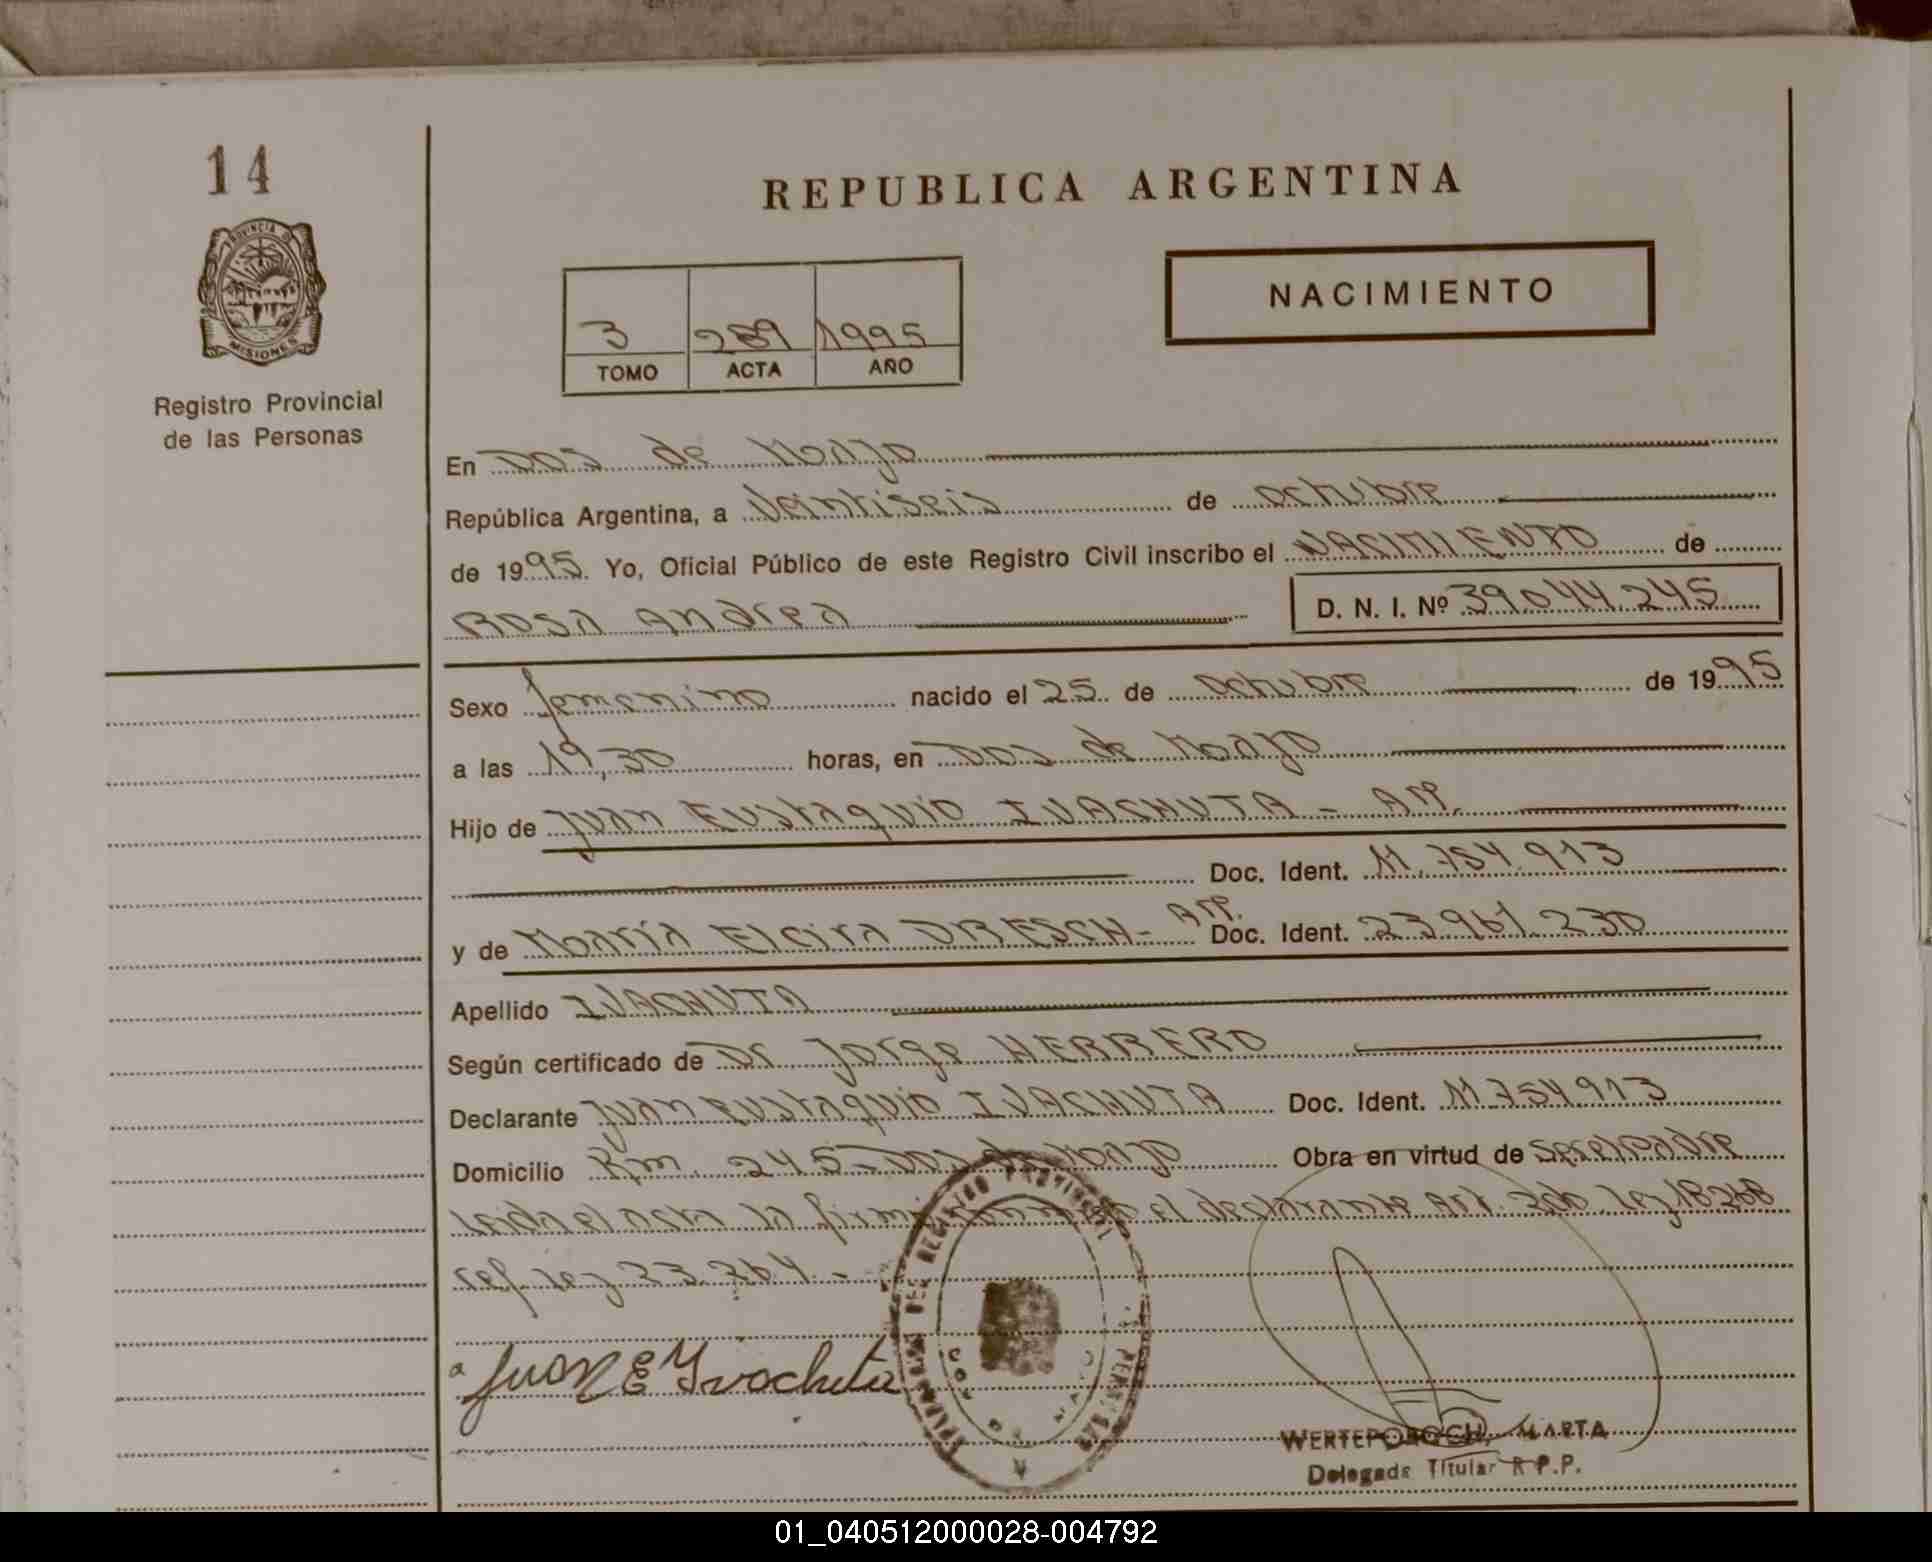 14
PROVINCIA D
MISIONES
Registro Provincial
de las Personas
REPUBLICA ARGENTINA
NACIMIENTO
3 289 1995
TOMO ACTA AÑO
En Dos de Mayo
República Argentina, a Veintiseis de octubre
de 1995. Yo, Oficial Público de este Registro Civil inscribo el NACIMIENTO de
ROSA Andrea D. N. I. Nº 39.044.245
Sexo femenino nacido el 25 de octubre de 1995
a las 19,30 horas, en Dos de Mayo
Hijo de Juan Eustaquio IVACHUTA - Arg.
Doc. Ident. 11.754.913
y de María Elcira DRESCH - Arg. Doc. Ident. 23.961.230
Apellido IVACHUTA
Según certificado de Dr. Jorge HERRERO
Declarante Juan Eustaquio IVACHUTA Doc. Ident. 11.754.913
Domicilio Km. 245 - Dos de Mayo Obra en virtud de ser el padre
Leida el acta la firma el declarante Art. 2do. ley 18248
ref. ley 23.264.-
Juan E Ivachuta
DEL REGISTRO PROVINCIAL
WERTEPOROCH, MARTA
Delegada Titular R.P.P.
01_040512000028-004792